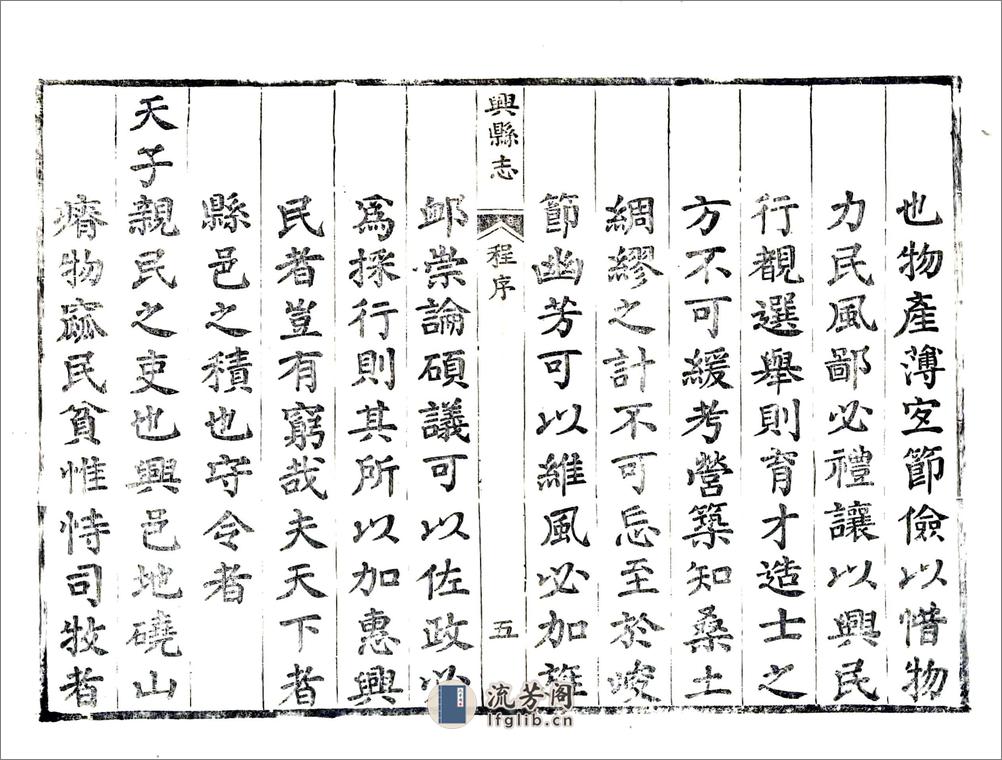 也物產薄宐節儉以惜物
力民風鄙必禮讓以興民
行覩選舉則育才造士之
方不可緩考營築知桑土
綢繆之計不可忘至於峻
節幽芳可以維風必加旌
興縣志
程序
五
卹崇論碩議可以佐政必
爲採行則其所以加惠興
民者豈有窮哉夫天下者
縣邑之積也守令者
天子親民之吏也興邑地磽山
瘠物窳民貧惟恃司牧者
流芳阁
lfglib.cn